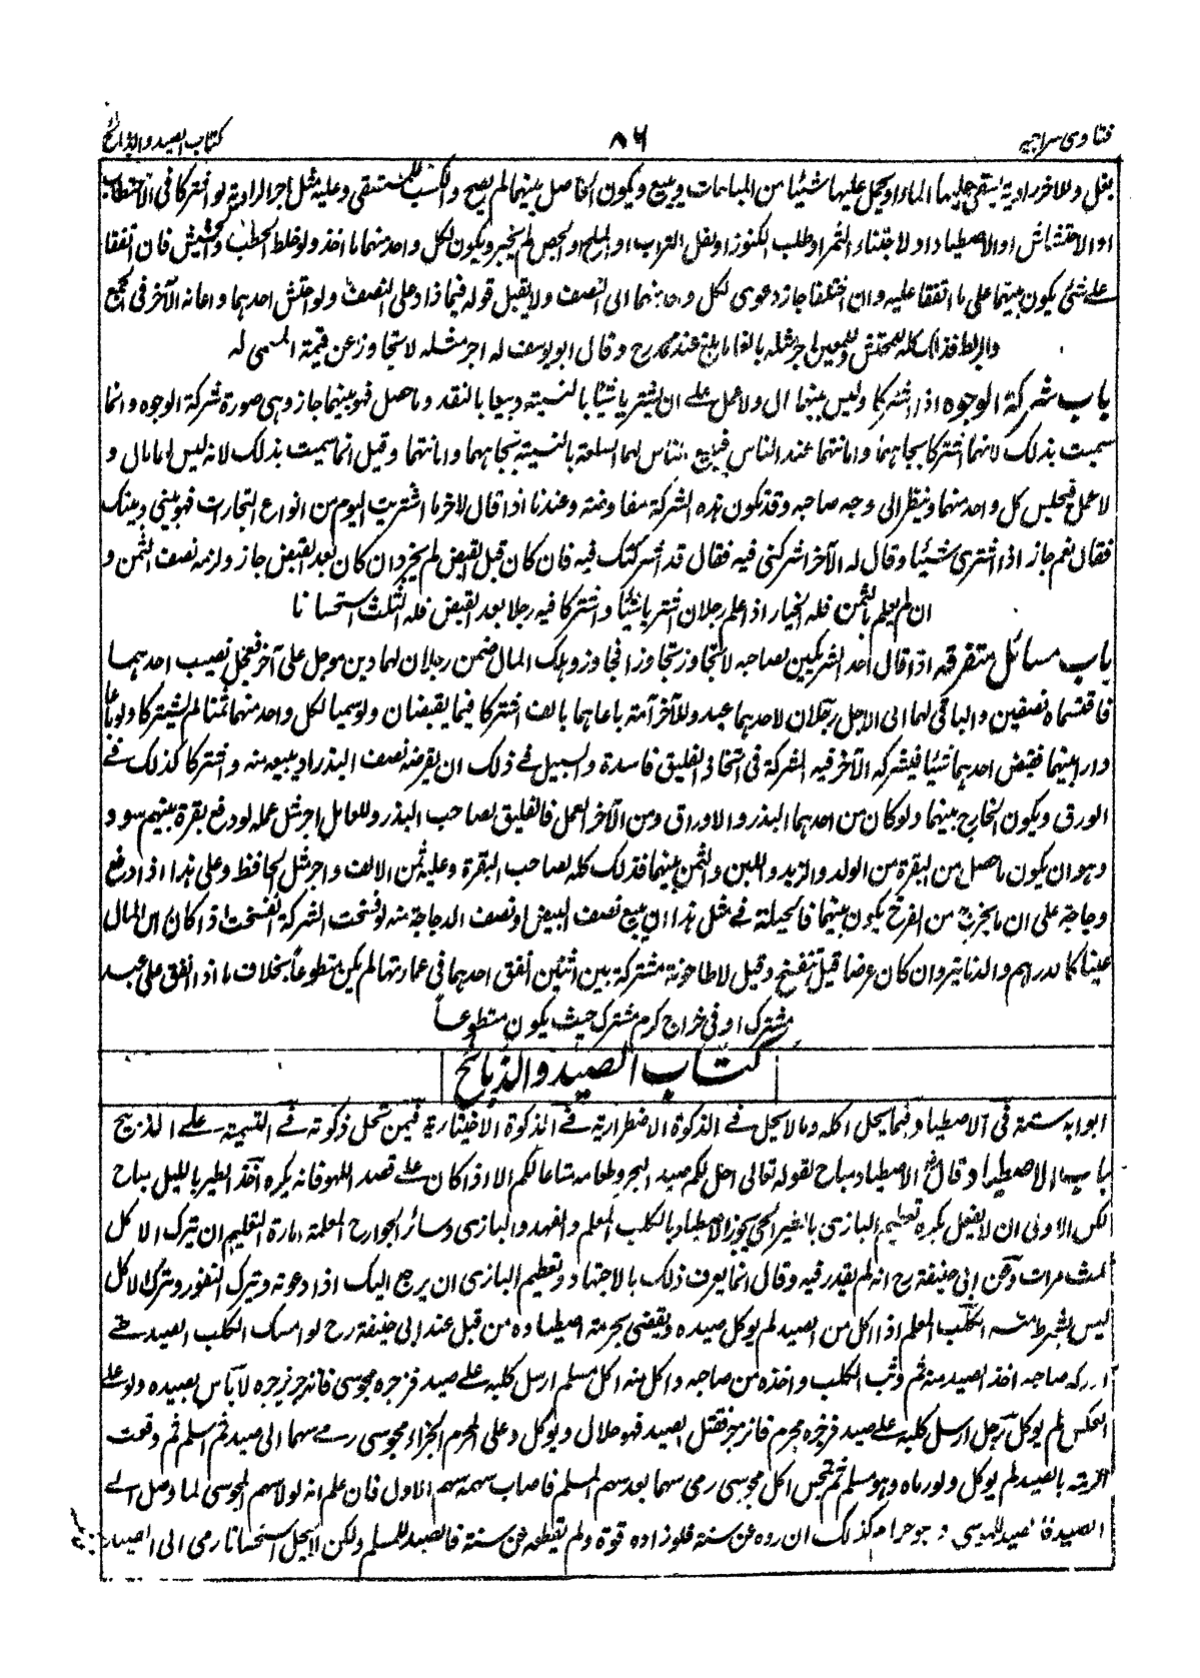 فتاوى سراجيه ٨٦ كتاب الصيد والذبائح
بغل وللاخر راوية يستقى عليها الماء او يحمل عليها شيئا من المباحات ويبيع ويكون الحاصل بينهما لم يصح والكسب للمستقى وعليه مثل اجر الراوية لو اشتركا فى الاحتطاب
او الاحتشاش او الاصطياد او لاجتناء الثمر او طلب الكنوز او نقل التراب او الملح او الجص لم يجز ويكون لكل واحد منهما ما اخذ ولو خلط الحطب والحشيش فان اتفقا
على شئ يكون بينهما على ما اتفقا عليه وان اختلفا جاز دعوى لكل واحد منهما الى النصف ولا يقبل قوله فيما زاد على النصف ولو احتش احدهما واعانه الآخر فى الجمع
والربط فذلك كله للمحتش وللمعين اجر مثله بالغا ما بلغ عند محمد رح وقال ابو يوسف له اجر مثله لا يتجاوز عن قيمة المسمى له
باب شركة الوجوه اذا اشتركا وليس بينهما مال ولا عمل على ان يشتريا شيئا بالنسيئة ويبيعا بالنقد وما حصل فهو بينهما جاز وهى صورة شركة الوجوه وانما
سميت بذلك لانهما اشتركا بجاههما وامانتهما عند الناس فيبيع الناس لهما السلعة بالنسيئة بجاههما وامانتهما وقيل انما سميت بذلك لانه ليس لهما مال و
لا عمل فيجلس كل واحد منهما وينظر الى وجه صاحبه وقد يكون هذه الشركة مفاوضة وعندنا اذا قال لاخر ما اشتريت اليوم من انواع التجارات فهو بينى وبينك
فقال نعم جاز اذا اشترى شيئا وقال له الآخر اشركنى فيه فقال قد اشركتك فيه فان كان قبل القبض لم يجز وان كان بعد القبض جاز ولزمه نصف الثمن و
ان لم يعلم بالثمن فله الخيار اذا علم رجلان اشتريا شيئا واشركا فيه رجلا بعد القبض فله الثلث استحسانا
باب مسائل متفرقه اذا قال احد الشريكين لصاحبه لا تتجاوز فتجاوز وهلك المال ضمن رجلان لهما دين موجل على آخر فعجل نصيب احدهما
فاقتسماه نصفين والباقى لهما الى الاجل رجلان لاحدهما عبد وللآخر امة باعاهما بالف اشتركا فيما يقبضان ولو سميا لكل واحد منهما ثمنا لم يشتركا ولو باعا
دارا بينهما فقبض احدهما شيئا فيشركه الآخر فيه الشركة فى اتخاذ الفليق فاسدة والسبيل فى ذلك ان يقرضه نصف البذر او يبيعه منه واشتركا كذلك فى
الورق ويكون الخارج بينهما ولو كان من احدهما البذر والاوراق ومن الآخر العمل فالفليق لصاحب البذر وللعامل اجر مثل عمله لو دفع بقرة بينهم سود
وهو ان يكون ما حصل من البقرة من الولد والزبد واللبن والثمن بينهما فذلك كله لصاحب البقرة وعليه ثمن الالف واجر مثل الحافظ وعلى هذا اذا دفع
دجاجة على ان ما يخرج من الفرخ يكون بينهما فالحيلة فى مثل هذا ان يبيع نصف البيض او نصف الدجاجة منه لو فسخت الشركة انفسخت اذا كان راس المال
عينا كالدراهم والدنانير وان كان عرضا قيل تنفسخ وقيل لا طاحونة مشتركة بين اثنين انفق احدهما فى عمارتها لم يكن متطوعا بخلاف ما اذا انفق على عبد
مشترك او فى خراج كرم مشترك حيث يكون متطوعا
كتاب الصيد والذبائح
ابوابه ستة فى الاصطياد وفيما يحل اكله وما لا يحل فى الذكوة الاضطرارية فى الذكوة الاختيارية فيمن تحل ذكوته فى التسمية على الذبيح
باب الاصطياد قال الاصطياد مباح لقوله تعالى احل لكم صيد البحر وطعامه متاعا لكم الا اذا كان على قصد اللهو فانه يكره اخذ الطير بالليل يباح
لكن الاولى ان لا يفعل يكره تعليم البازى بالطير الحى يجوز الاصطياد بالكلب المعلم والفهد والبازى وسائر الجوارح المعلمة امارة التعليم ان يترك الاكل
ثلث مرات وعن ابى حنيفة رح انه لم يقدر فيه وقال انما يعرف ذلك بالاجتهاد وتعليم البازى ان يرجع اليك اذا دعوته وترك النفور وترك الاكل
ليس بشرط منه الكلب المعلم اذا اكل من الصيد لم يوكل صيده ويقضى بحرمة ما اصطياده من قبل عند ابى حنيفة رح لو امسك الكلب الصيد حتى
ادركه صاحبه اخذ الصيد منه ثم وثب الكلب واخذه من صاحبه واكل منه اكل مسلم ارسل كلبه على صيد فزجره مجوسى فانزجر بزجره لا باس بصيده ولو على
العكس لم يوكل رجل ارسل كلبه على صيد فزجره محرم فانزجر فقتل الصيد فهو حلال ويوكل وعلى المحرم الجزاء مجوسى رمى سهما الى صيد ثم اسلم ثم وقعت
الرمية بالصيد لم يوكل ولو رماه وهو مسلم ثم تمجس اكل مجوسى رمى سهما بعد سهم المسلم فاصاب سهمه سهم الاول فان علم انه لولا سهم المجوسى لما وصل الى
الصيد فالصيد للمجوسى وهو حرام كذلك ان رده عن سننه فلو زاده قوة ولم يقطعه عن سننه فالصيد للمسلم ولكن لا يحل استحسانا رمى الى الصيد